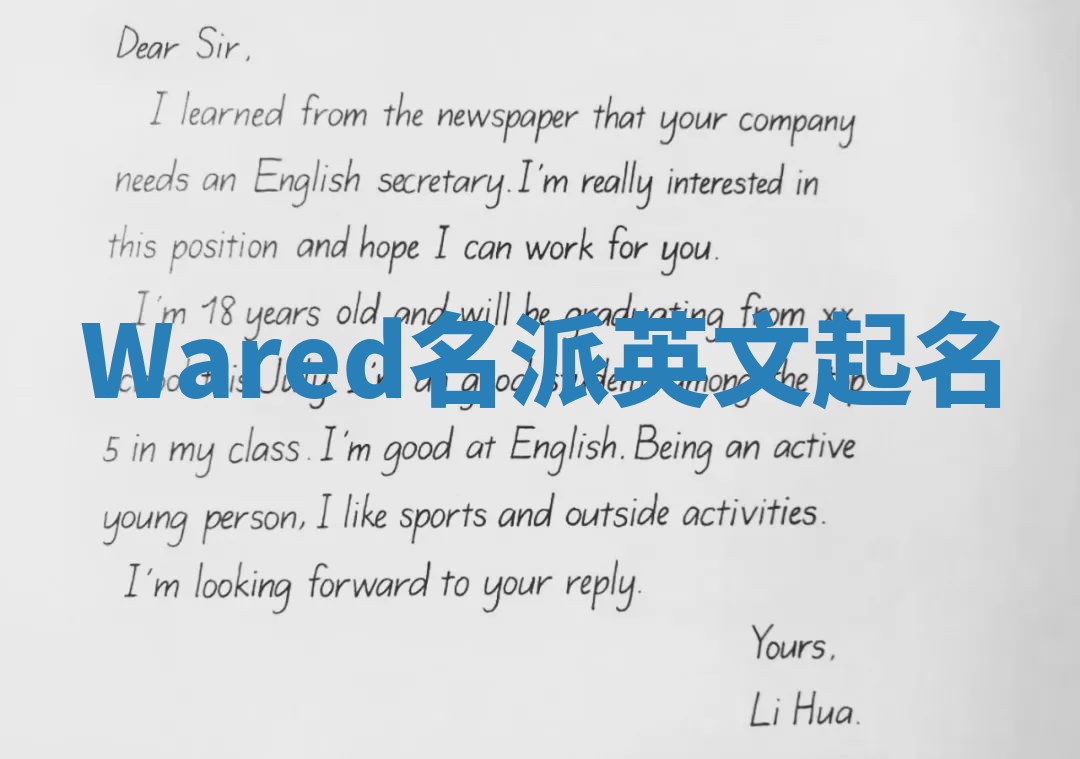 Dear Sir,
I learned from the newspaper that your company
needs an English secretary. I'm really interested in
this position and hope I can work for you.
I'm 18 years old and will be graduating from xx
Wared名派英文起名
school this July. I'm good student among the top
5 in my class. I'm good at English. Being an active
young person, I like sports and outside activities.
I'm looking forward to your reply.
Yours,
Li Hua.